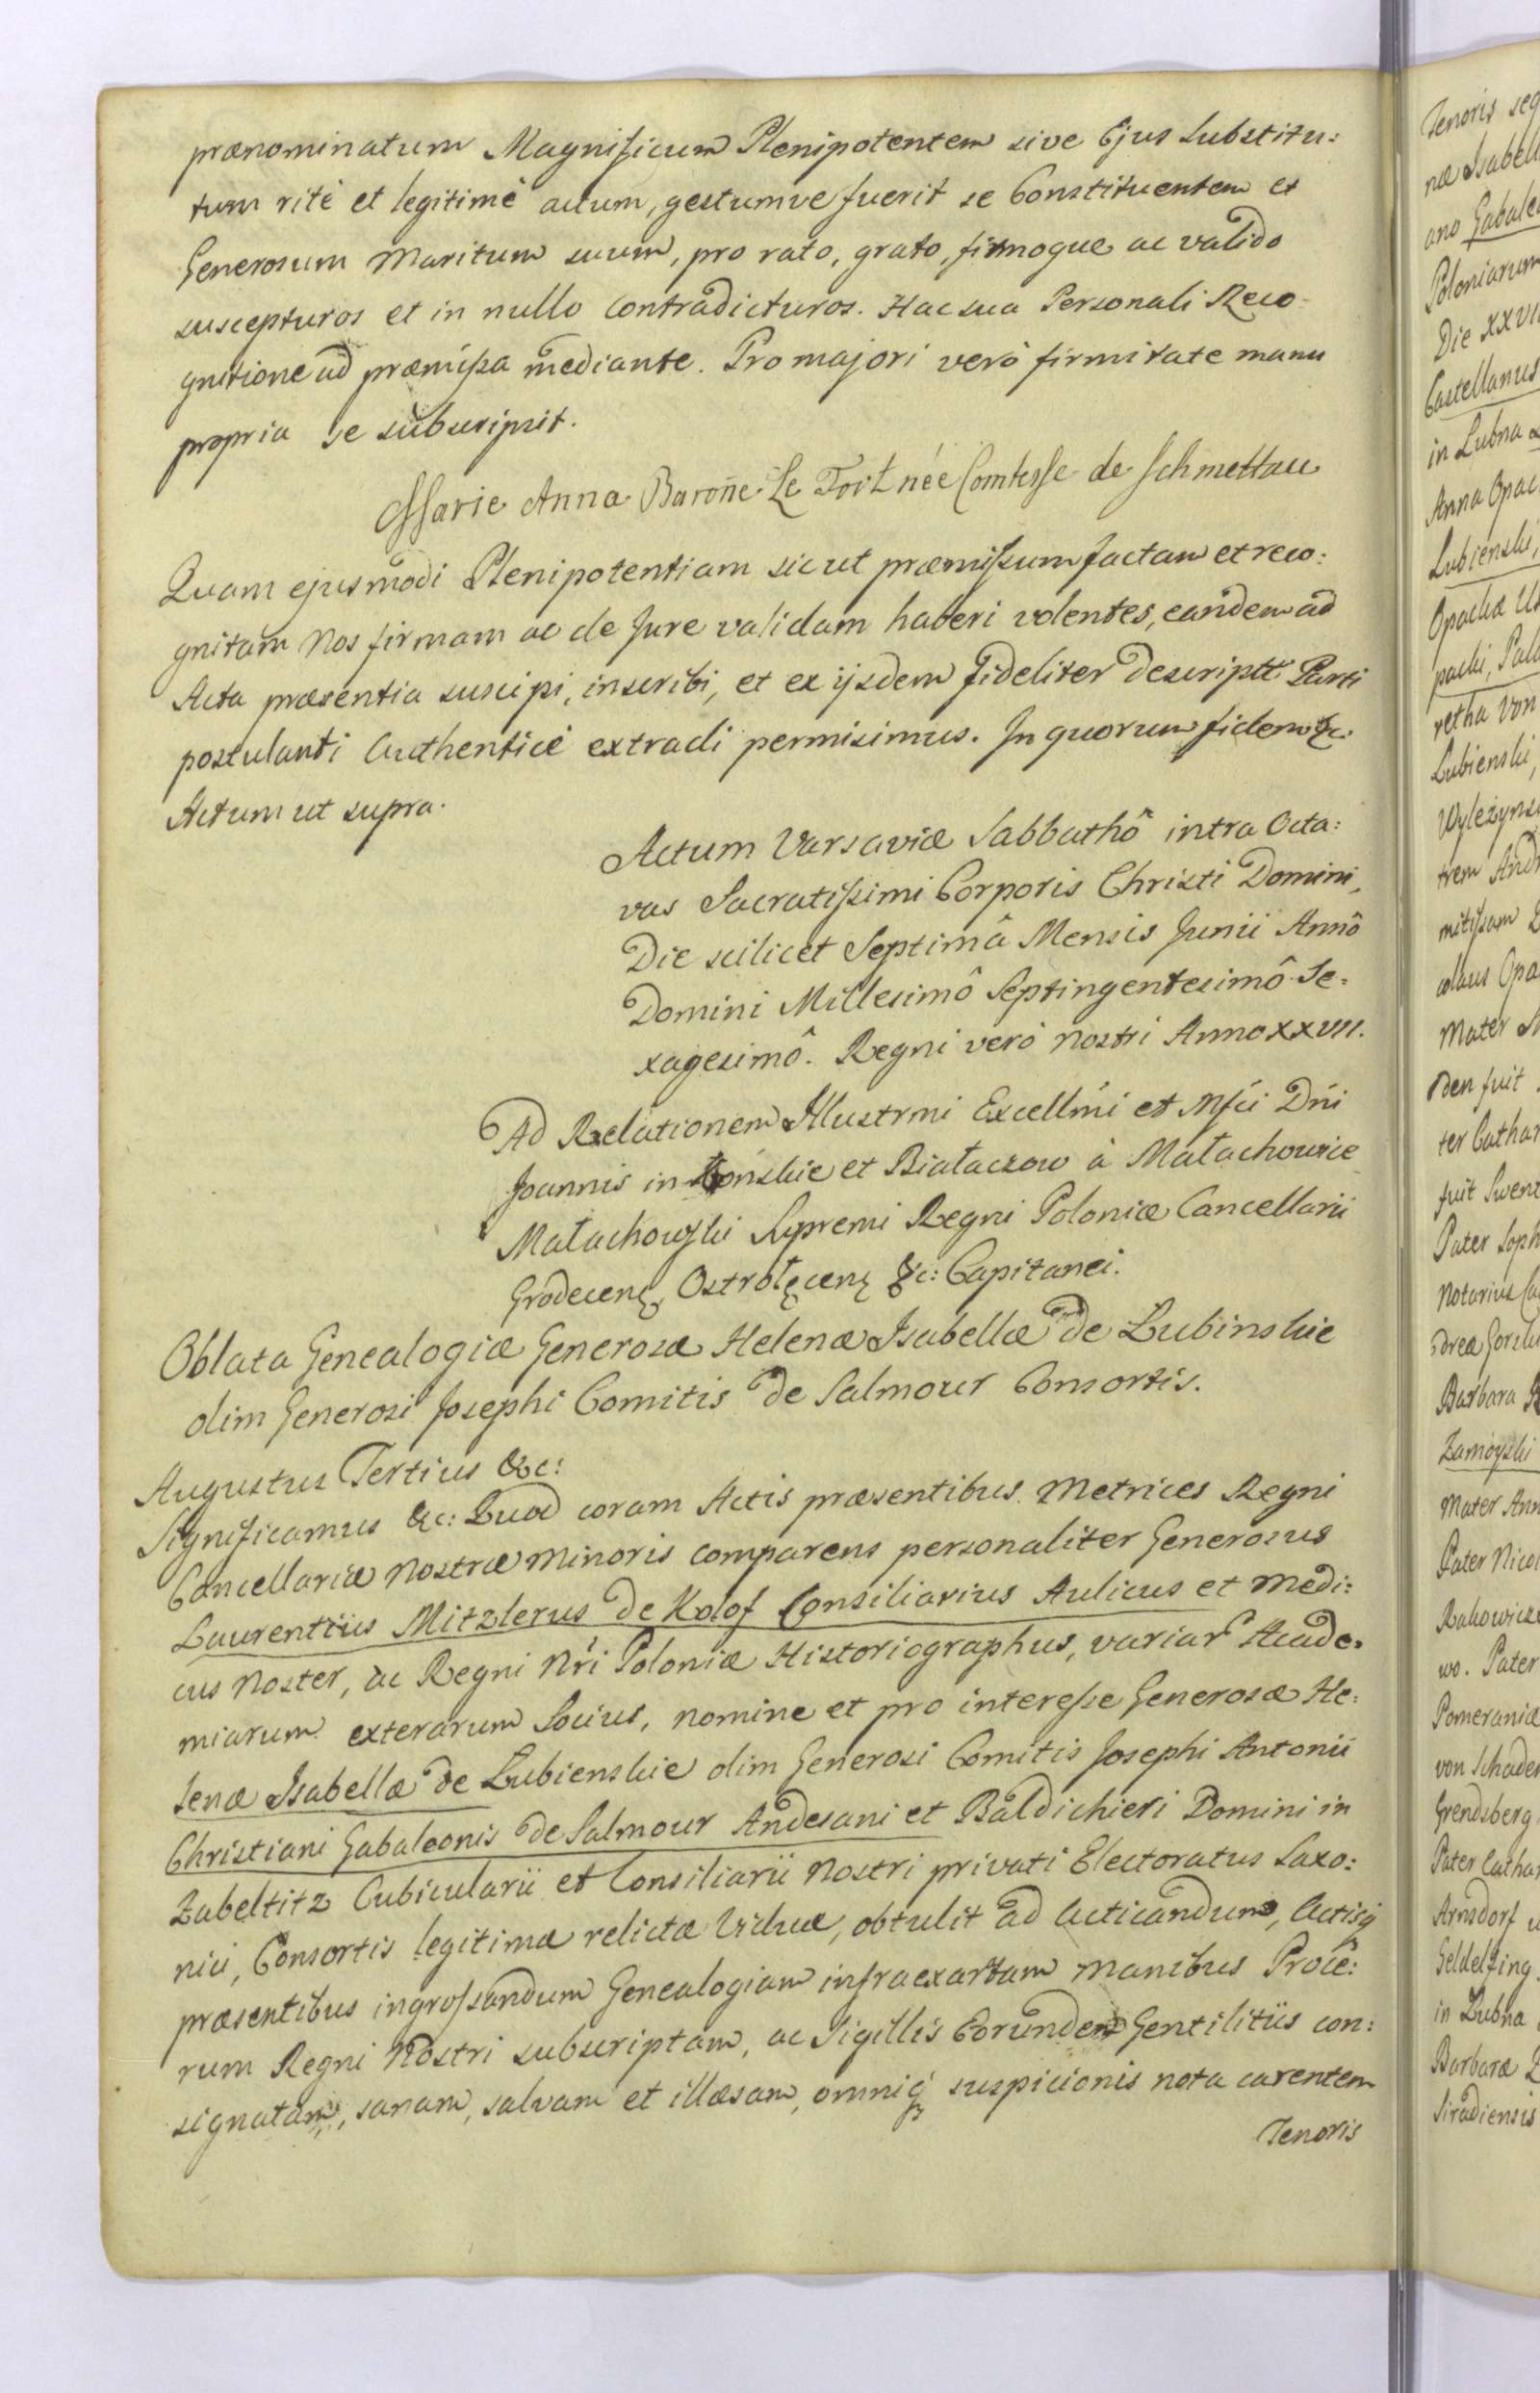 prænominatum Magnificum Plenipotentem sive Ejus Substitu:
tum ritè et legitimè actum, gestumve fuerit se Constituentem et
Generosum Maritum suum, pro rato, grato, firmoque ac valido
suscepturos et in nullo contradicturos. Hac sua Personali Reco-
gnitione ad præmissa mediante. Pro majori verò firmitate manu
propria se subscripsit.
Marie Anna Baroñe Le Fort née Comtesse de Schmettau
Quam ejusmodi Plenipotentiam sicut præmissum factam et reco:
gnitam Nos firmam ac de Jure validam haberi volentes, eandem ad
Acta præsentia suscipi, inscribi, et ex ijsdem fideliter descriptt Parti
postulanti Authenticè extradi permisimus. In quorum fidem &c.
Actum ut supra.
Actum Varsaviæ Sabbathô intra Octa:
vas Sacratissimi Corporis Christi Domini,
Die scilicet Septimâ Mensis Junii Annô
Domini Millesimô Septingentesimô Se:
xagesimô. Regni verò nostri Anno XXVII.
Ad Relationem Illustrmi Excellm̃i et Mfci Dñi
Joannis in Końskie et Białaczow à Małachowice
Małachowski Supremi Regni Poloniæ Cancellarii
Grodecen, Ostrołęcen &c: Capitanei.
Oblata Genealogiæ Generosæ Helenæ Isabellæ de Lubinskie
olim Generosi Josephi Comitis de Salmour Consortis.
Augustus Tertius &c:
Significamus &c: Quod coram Actis præsentibus Metrices Regni
Cancellariæ Nostræ Minoris comparens personaliter Generosus
Laurentius Mitzlerus de Kolof Consiliarius Aulicus et Medi:
cus Noster, ac Regni Nr̃i Poloniæ Historiographus, variar Acade:
miarum exterarum Socius, nomine et pro interesse Generosæ He:
lenæ Isabellæ de Lubienskie olim Generosi Comitis Josephi Antonii
Christiani Gabaleonis de Salmour Andesani et Baldichieri Domini in
Zabeltitz Cubicularii et Consiliarii Nostri privati Electoratus Saxo:
nici, Consortis legitimæ relictæ Viduæ, obtulit ad Acticandum, Actisq
præsentibus ingrossandum Genealogiam infraexartam manibus Proce:
rum Regni Nostri subscriptam, ac Sigillis Eorundem Gentilitiis con:
signatam, sanam, salvam et illæsam, omniq suspicionis nota carentem
Tenoris
Tenoris seq
næ Isabell
ano Gabale
Poloniarum
Die XXVI
Castellanus
in Lubna
Anna Opac
Lubienski,
Opacka
packi, Pala
retha von
Lubienski,
Wyleżyns
trem Andr
mitissam
colaus Opa
Mater
den fuit
ter Cathar
fuit Swent
Pater Soph
Notarius Ca
dreæ Gorsk
Barbara
Zamoyski
Mater Ann
Pater Nicol
Rakowicz
wo. Pater
Pomeraniæ
von Schaden
Grendsberg
Pater Cathar
Arnsdorf
Geldelfing
in Lubna
Barbaræ
Siradiensis